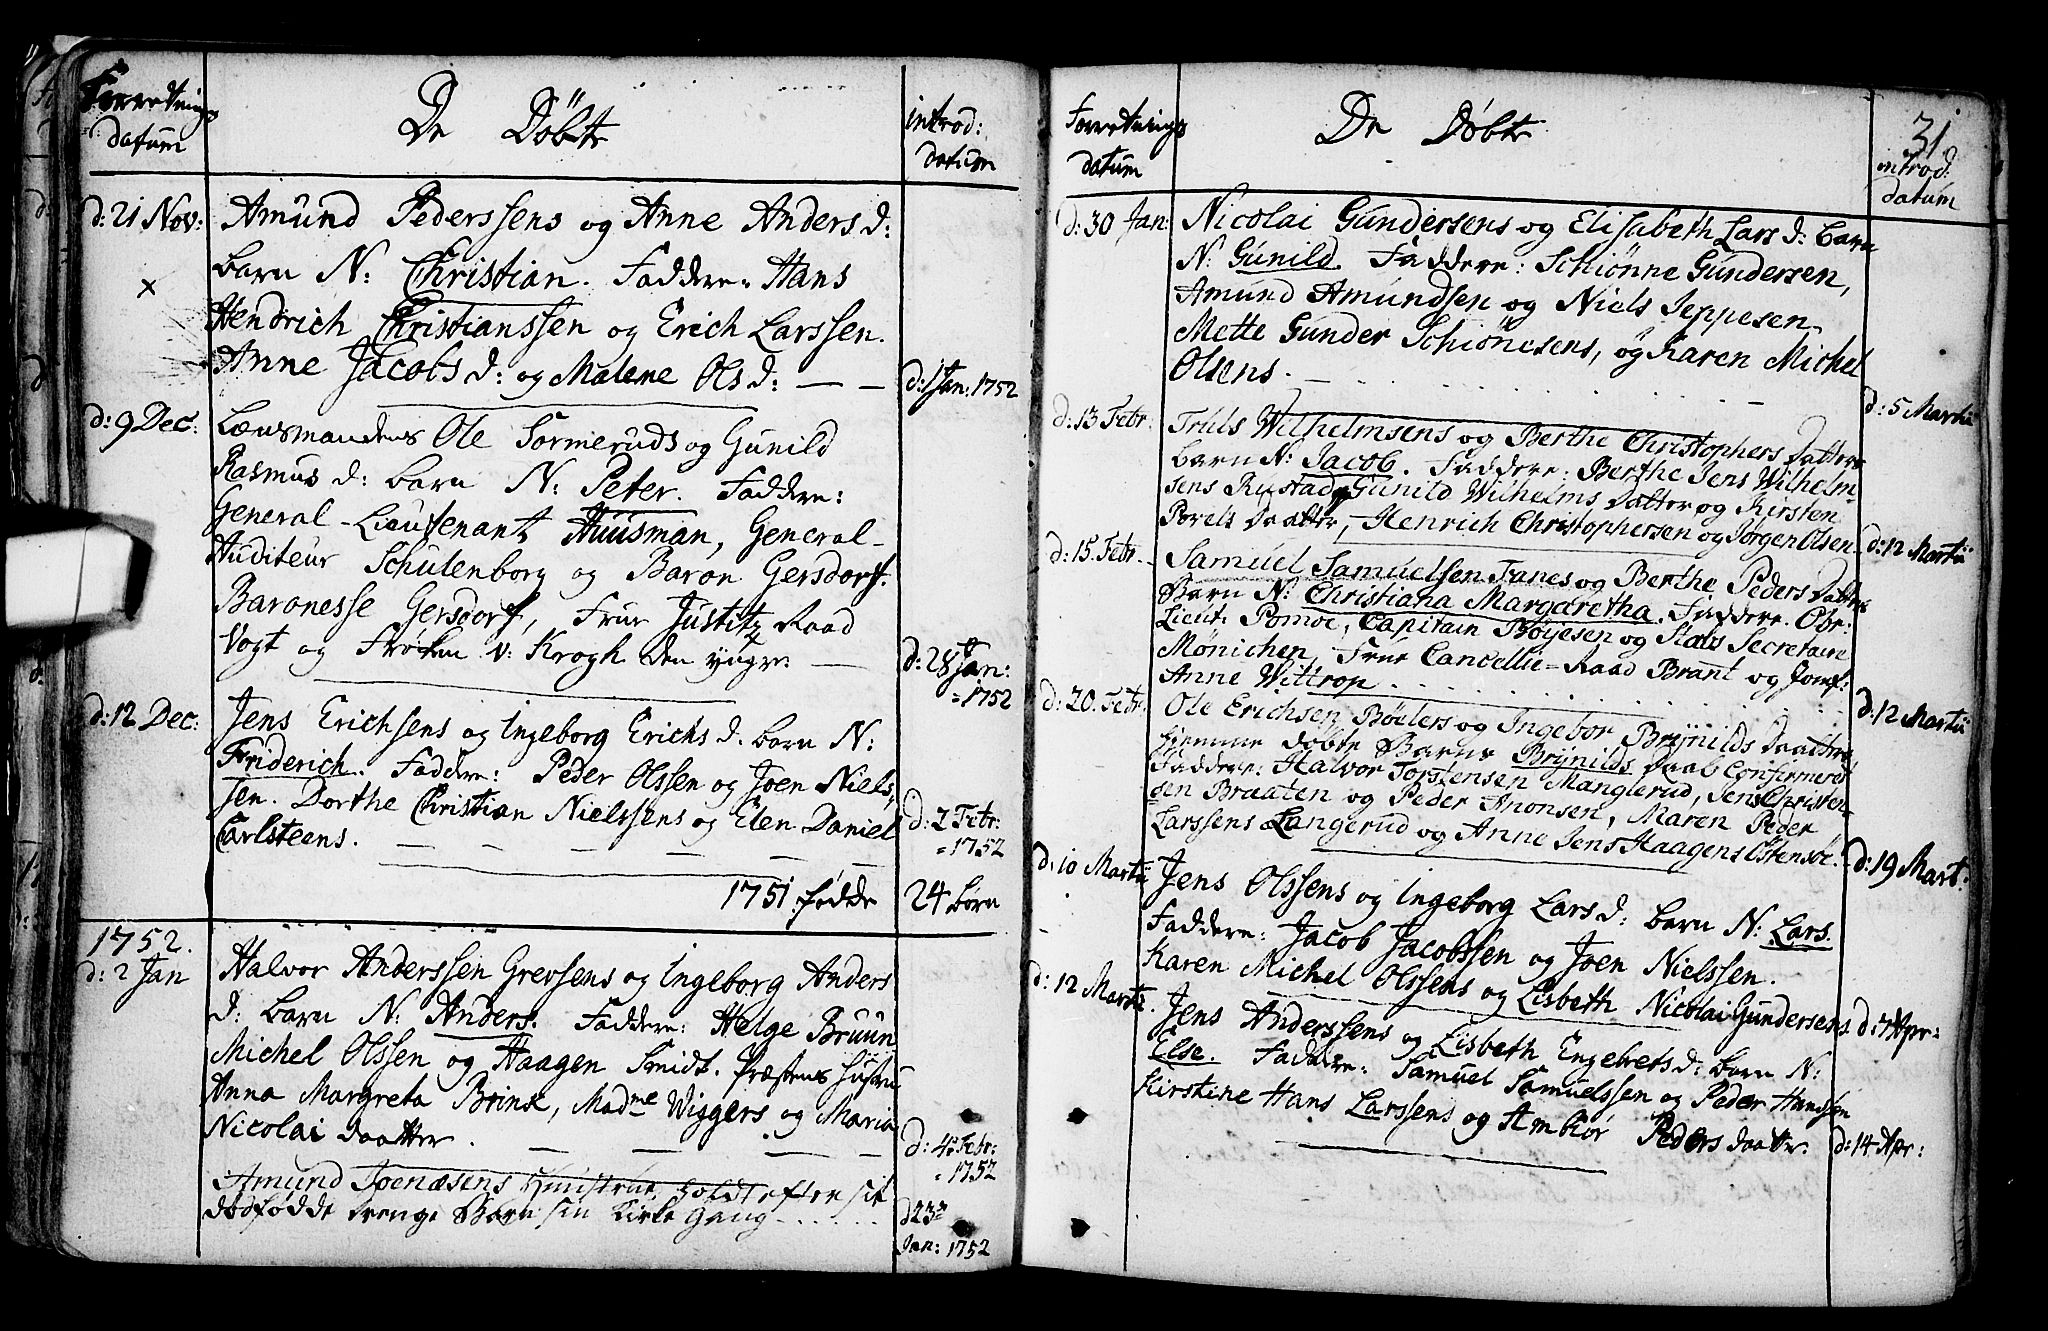 Forretnings
datum
De Döbte
introd:
datum
d: 21 Nov: Amund Pederssens og Anne Anders d:
barn N: Christian. Faddere: Hans
Hendrich Christianssen og Erich Larssen.
Anne Jacobs d: og Malene Ols d: — — d: 1 Jan: 1752
d: 9 Dec: Lænsmandens Ole Sormeruds og Gunild
Rasmus d: barn N: Peter. Faddere:
General-Lieutenant Huusman, General-
Auditeur Schulenborg og Baron Gersdorf.
Baronesse Gersdorf, Frue Justitz Raad
Vogt og Frøken v: Krogh den yngre: — d: 28 Jan:
= 1752
d: 12 Dec: Jens Erichsens og Ingeborg Erichs d: barn N:
Friderich. Faddere: Peder Olssen og Joen Niels-
sen. Dorthe Christian Nielssens og Elen Daniel
Carlsteens. — — — — — d: 2 Febr:
= 1752
1751 fødde 24 børn
1752.
d: 2 Jan Halvor Anderssen Grevsens og Ingeborg Anders
d: barn N: Anders. Faddere: Helge Bruun
Michel Olssen og Haagen Smidt. Præstens hustru
Anna Margreta Brinx, Madme Wiggers og Maria
Nicolai daatter. — — — — d: 4 Febr:
= 1752
Amund Joenæsens Huustrue, holdt efter sit
dødfødde drenge Barn sin Kirke Gang ...... d 23
Jan: 1752
31
Forretnings
datum
De Døbte
introd:
datum
d: 30 Jan: Nicolai Gundersens og Elisabeth Lars d: barn
N: Gunild. Faddere: Schiønne Gundersen,
Amund Amundsen og Niels Jeppesen
Mette Gunder Schiönesens, og Karen Michel
Olsens. — d: 5 Martii
d: 13 Febr: Truls Wilhelmsens og Berthe Christophers Datters
barn N: Jacob. Faddere: Berthe Jens Wilhelm-
sens Rustad, Gunild Wilhelms Datter og Kirsten
Povels Daatter, Henrich Christophersen og Jørgen Olsen. d: 12 Martii
d: 15. Febr. Samuel Samuelsen Tanes og Berthe Peders Datters
Barn N: Christiana Margaretha. Faddere. Obr:
Lieut: Pomoe, Capitain Bøyesen og Stabs Secretaire
Mönichen, Frue Cancellie-Raad Brant og Jomf:
Anne Wittrop. ...... d: 12 Martii
d: 20. Febr. Ole Erichsen Bølers og Ingebor Brynilds Daatters
hiemme døbte Barns Brynilds Daab Confirmeret
Faddere: Halvor Torstensen Manglerud, Jens Christen-
sen Braaten og Peder Anonsen, Maren Peder
Larssens Langerud og Anne Jens Haagens Østensøe. d: 19 Mart:
d: 10 Martii Jens Olssens og Ingeborg Lars d: barn N: Lars.
Faddere: Jacob Jacobssen og Joen Nielssen.
Karen Michel Olssens og Lisbeth Nicolai Gundersens. d: 7 Apr:
d: 12 Martii. Jens Anderssens og Lisbeth Engebrets d: barn N:
Else. Faddere: Samuel Samuelssen og Peder Hansen
Kirstine Hans Larssens og Ambiør Peders daatter. d: 14 Apr: